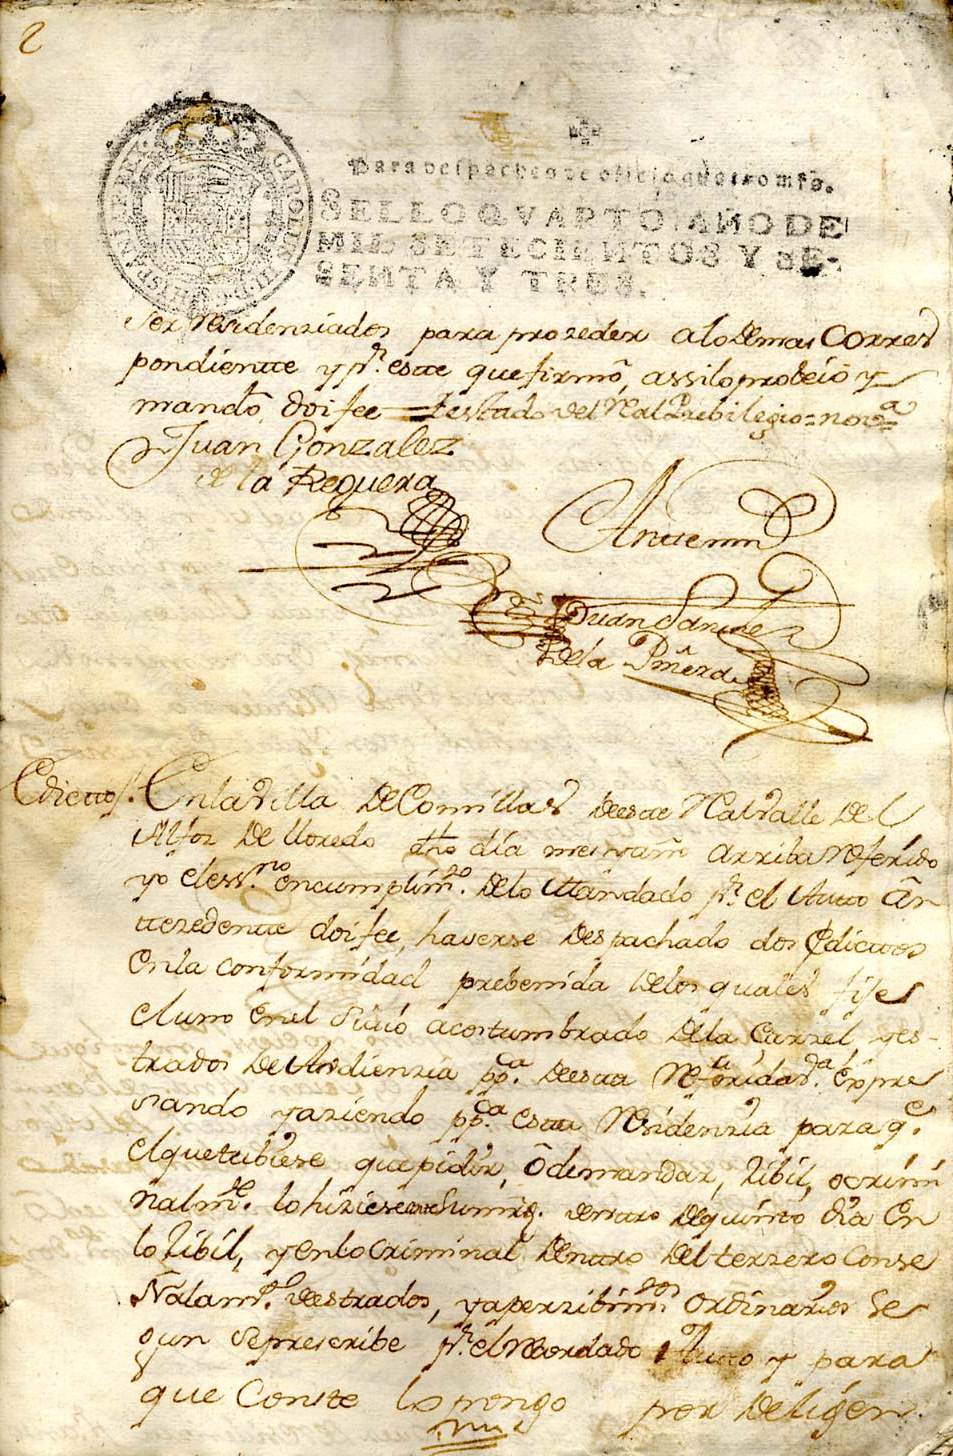 2
CAROLUS III D G HISPANIAR REX
Para despachos de oficio quatro mrs.
SELLO QVARTO, AÑO DE
MIL SETECIENTOS Y SE-
SENTA Y TRES.
Ser Residenziados para prozeder alo demas Corres
pondientte y pr. estte que firmó, assilo probeió y
mandó, doi fee = testado del Real Pribilegio = no va =
Juan Gonzalez
de la Reguera
Antte mi
Juan Sanchez
De la
Edictto
En la Villa De Comillas deestte Real Valle Del
Alfoz De lloredo dho dia mes y año arriba Referido
yo el essno. en cumplimto. Delo Mandado pr. el Autto An
ttezedentte doi fee, haverse Despachado dos Edicttos
En la conformidad prebenida Delos quales fije
el uno En el Sittio acostumbrado De la Carzel, yes-
trados De Audienzia ppca. deestta Referida Va. Expre
sando y aziendo ppca. estta Residenzia para qe.
el que tubiese que pidir, ó demandar, Zibil, o crimi
nalmte. lo hiziese antte Su mrd. denttro De quinto dia En
lo Zibil, y en lo Criminal Denttro Del terzero Conse
ñalamto. de estrados, y aperzibimtos ordinarios Se
gun se prescribe pr. el Recordado Autto y para
que Conste lo pongo por Deligen